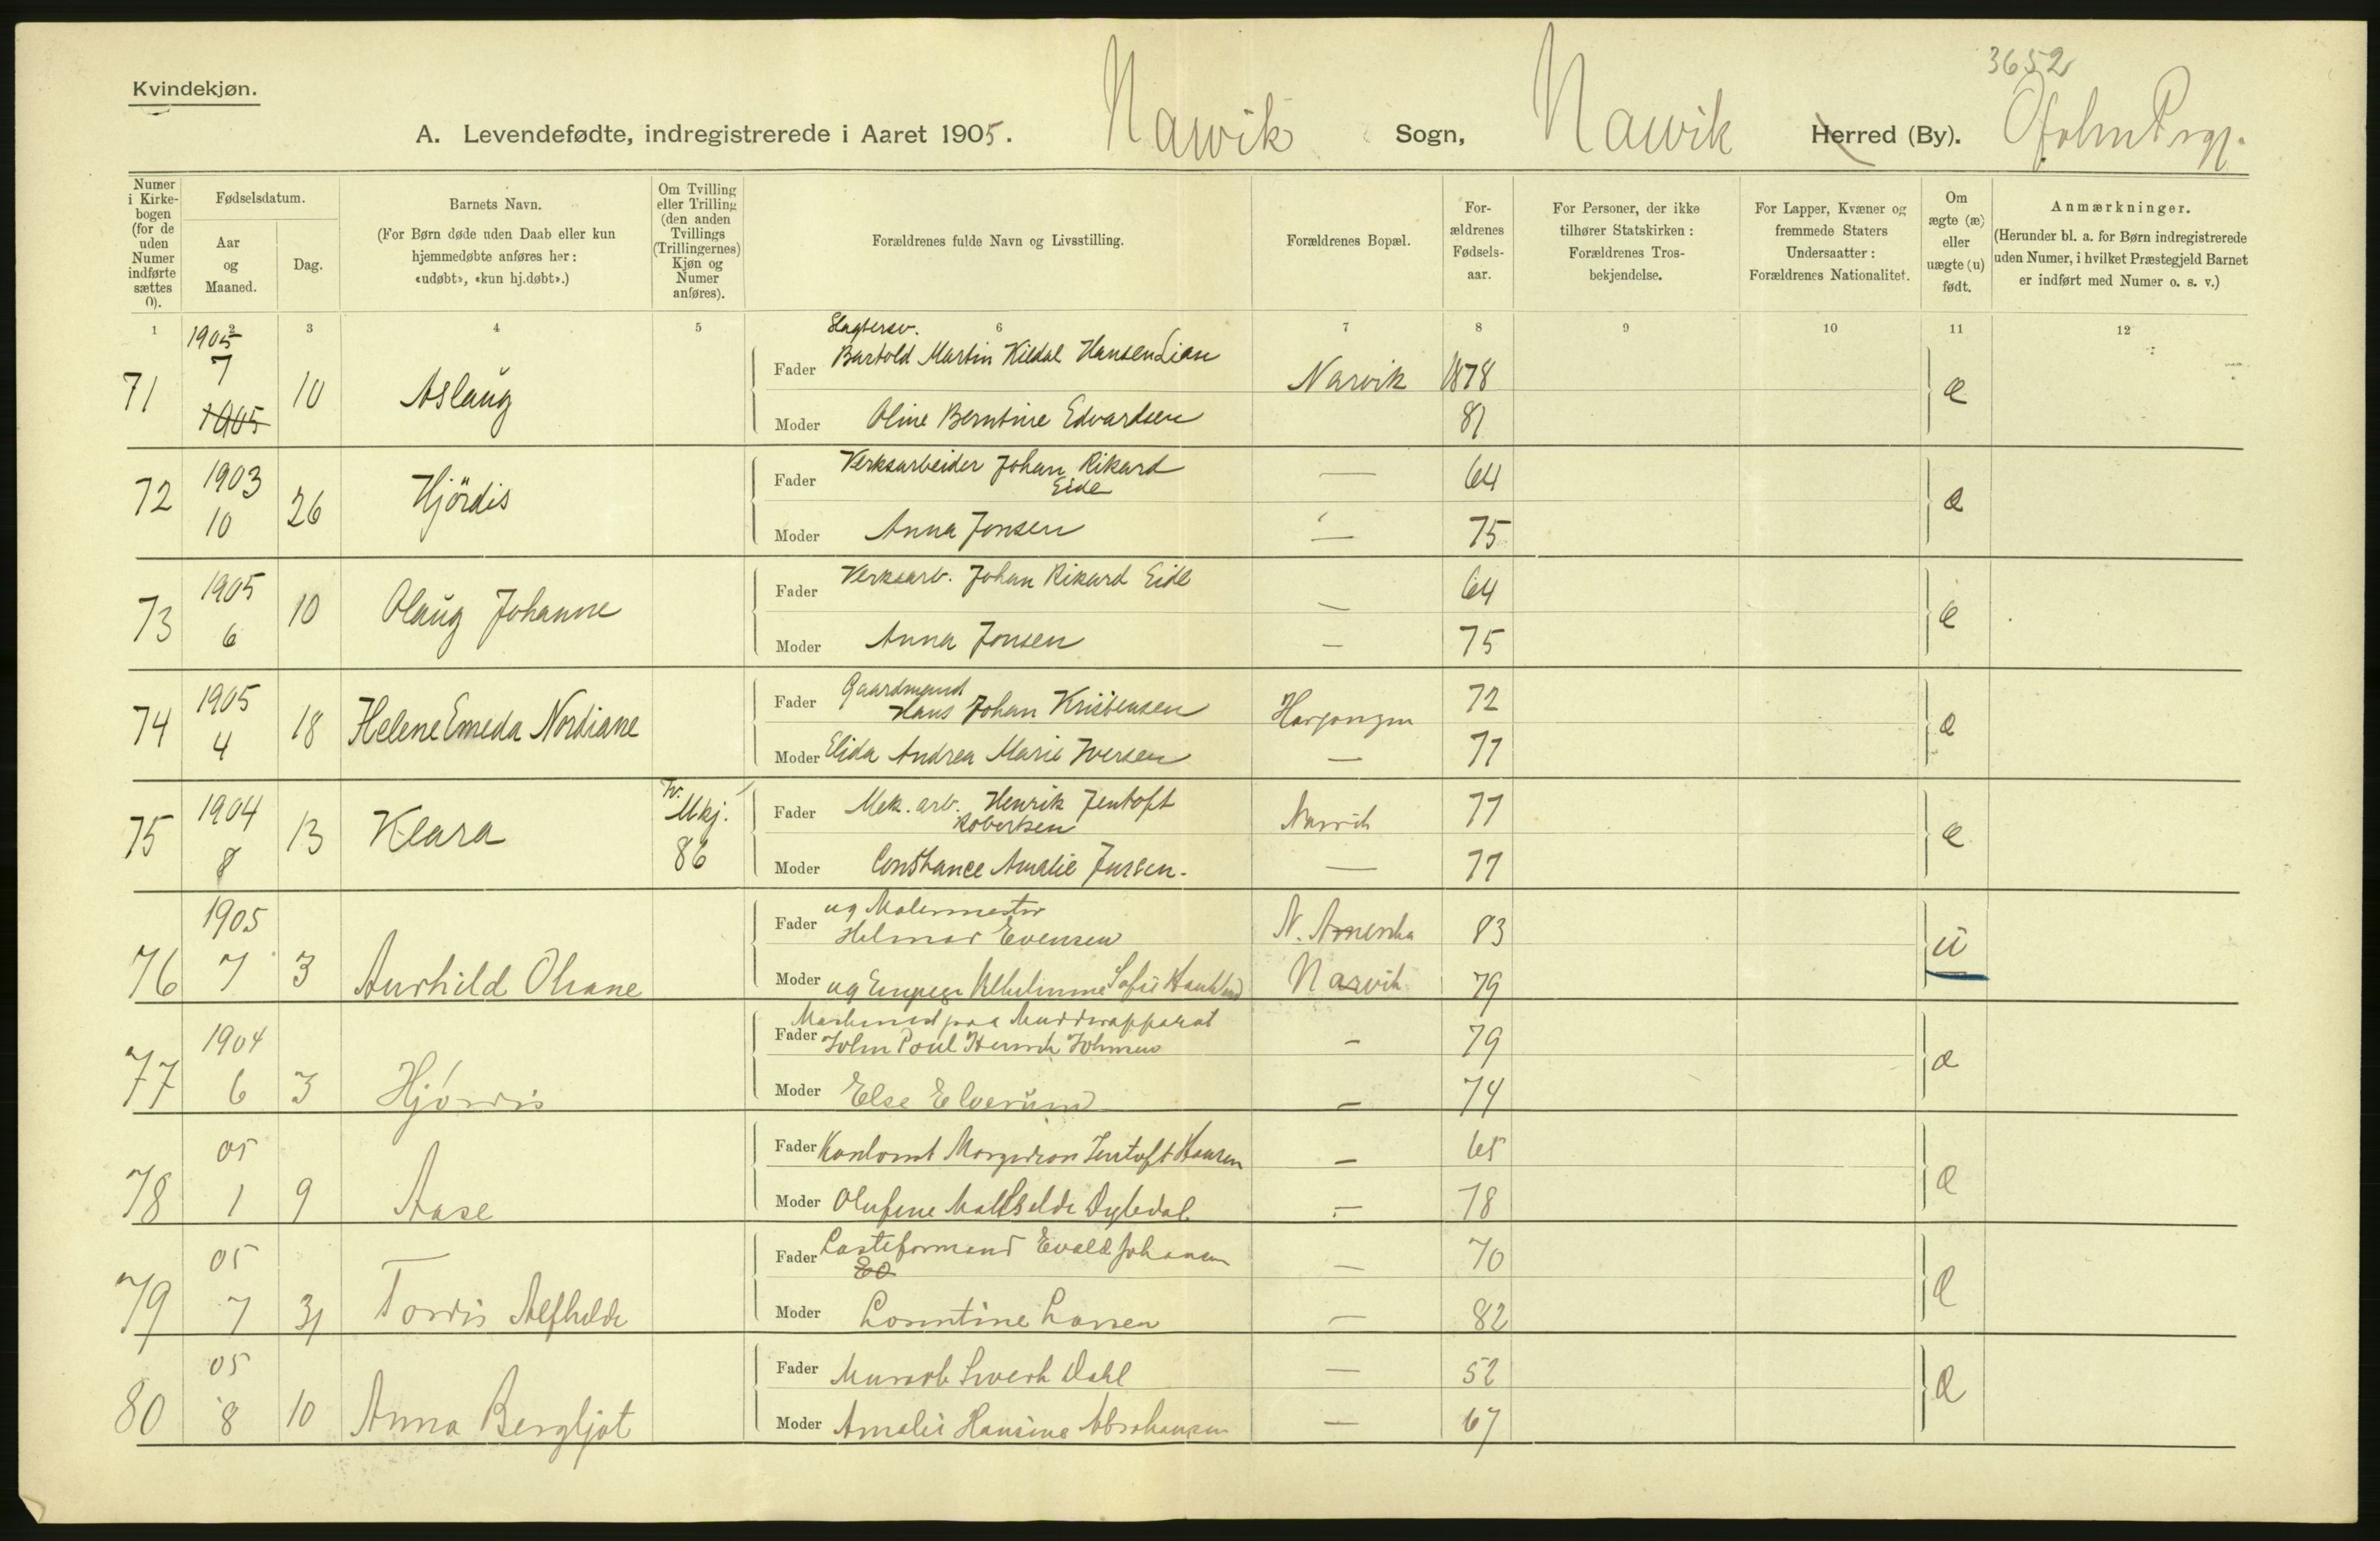 3652
Kvindekjøn.
A. Levendefødte, indregistrerede i Aaret 1905. Narvik Sogn, Narvik Herred (By).
Numer i Kirkebogen (for de uden Numer indførte sættes 0).
Fødselsdatum.
Aar og Maaned.
Dag.
Barnets Navn.
(For Børn døde uden Daab eller kun hjemmedøbte anføres her: «udøbt», «kun hj.døbt».)
Om Tvilling eller Trilling (den anden Tvillings (Trillingernes) Kjøn og Numer anføres).
Forældrenes fulde Navn og Livsstilling.
Forældrenes Bopæl.
Forældrenes Fødselsaar.
For Personer, der ikke tilhører Statskirken: Forældrenes Trosbekjendelse.
For Lapper, Kvæner og fremmede Staters Undersaatter: Forældrenes Nationalitet.
Om ægte (æ) eller uægte (u) født.
Anmærkninger.
(Herunder bl. a. for Børn indregistrerede uden Numer, i hvilket Præstegjeld Barnet er indført med Numer o. s. v.)
1 2 3 4 5 6 7 8 9 10 11 12
71 1905 7 1905 10 Aslaug
Fader Slagtersv. Bartold Martin Kildal Hansen Lian Narvik 1878 æ
Moder Oline Berntine Edvardsen 81
72 1903 10 26 Hjördis
Fader Verksarbeider Johan Rikard Eide — 64 æ
Moder Anna Jonsen — 75
73 1905 6 10 Olaug Johanne
Fader Verksarb. Johan Rikard Eide — 64 æ
Moder Anna Jonsen — 75
74 1905 4 18 Helene Emeda Nordiane
Fader Gaardmand Hans Johan Kristensen 72 æ
Moder Elida Andrea Marie Iversen — 77
75 1904 8 13 Klara Tv. Mkj. 86
Fader Mek. arb. Henrik Jentoft Robertsen Narvik 77 æ
Moder Constance Amalie Jensen. — 77
76 1905 7 3
Fader ug Malermester Helmar Evensen N. Amerika 83 u
Moder Narvik 79
77 1904 6 3 Hjördis
Fader - 79 æ
Moder Else Elverum - 74
78 05 1 9 Aase
Fader Jentoft Hansen - 65 æ
Moder - 78
79 05 7 31 Tordis Alfhilde
Fader Lasteformand Evald Johansen — 70 æ
Moder Lorentine Larsen — 82
80 05 8 10 Anna Bergljot
Fader Dahl — 52 æ
Moder Amalie Hansine Abrahamsen — 67